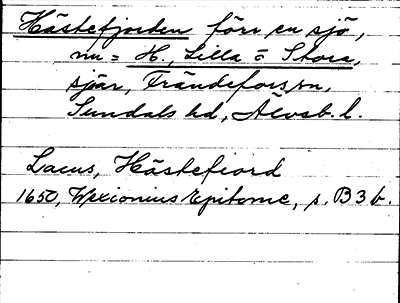 Hästefjorden förr en sjö,
nu = H., Lilla o Stora,
sjöar, Frändefors sn,
Sundals hd, Älvsb. l.
Lacus, Hästefiord
1650, Wexionius Epitome, s. B3b.